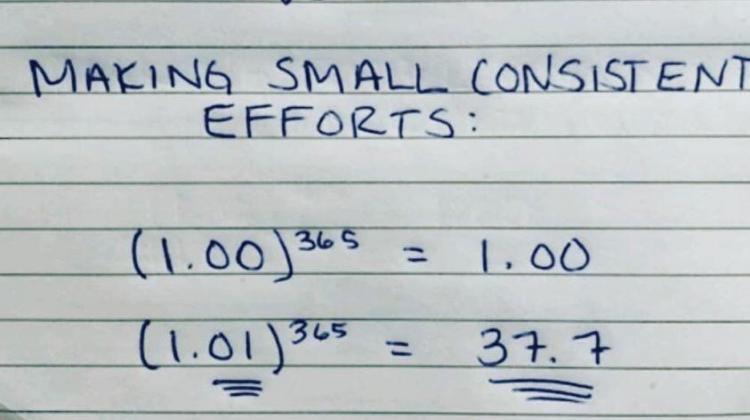 MAKING SMALL CONSISTENT
EFFORTS:
(1.00)³⁶⁵ = 1.00
(1.01)³⁶⁵ = 37.7